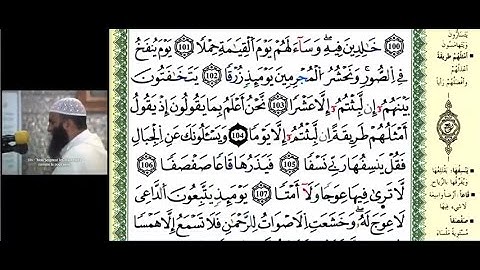 خَـٰلِدِينَ فِيهِ ۖ وَسَآءَ لَهُمْ يَوْمَ ٱلْقِيَـٰمَةِ حِمْلًا ﴿101﴾ يَوْمَ يُنفَخُ
فِى ٱلصُّورِ ۚ وَنَحْشُرُ ٱلْمُجْرِمِينَ يَوْمَئِذٍ زُرْقًا ﴿102﴾ يَتَخَـٰفَتُونَ
بَيْنَهُمْ إِن لَّبِثْتُمْ إِلَّا عَشْرًا ﴿103﴾ نَّحْنُ أَعْلَمُ بِمَا يَقُولُونَ إِذْ يَقُولُ
أَمْثَلُهُمْ طَرِيقَةً إِن لَّبِثْتُمْ إِلَّا يَوْمًا ﴿104﴾ وَيَسْـَٔلُونَكَ عَنِ ٱلْجِبَالِ
فَقُلْ يَنسِفُهَا رَبِّى نَسْفًا ﴿105﴾ فَيَذَرُهَا قَاعًا صَفْصَفًا ﴿106﴾
لَّا تَرَىٰ فِيهَا عِوَجًا وَلَآ أَمْتًا ﴿107﴾ يَوْمَئِذٍ يَتَّبِعُونَ ٱلدَّاعِىَ
لَا عِوَجَ لَهُۥ ۖ وَخَشَعَتِ ٱلْأَصْوَاتُ لِلرَّحْمَـٰنِ فَلَا تَسْمَعُ إِلَّا هَمْسًا